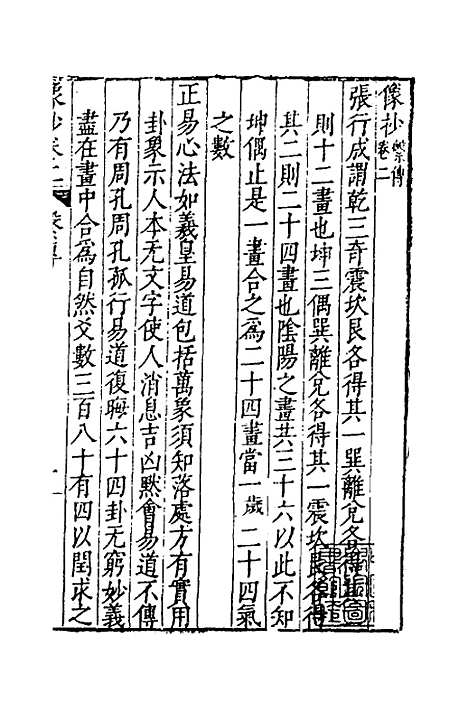 像抄繫傳卷二
張行成謂乾三奇震坎艮各得其一巽離兌各得其二
則十二畫也坤三偶巽離兌各得其一震坎艮各得
其二則二十四畫也陰陽之畫共三十六以此不知
坤偶止是一畫合之為二十四畫當一歲二十四氣
之數
正易心法如羲皇易道包括萬象須知落處方有實用
卦象示人本无文字使人消息吉凶默會易道不傳
乃有周孔周孔孤行易道復晦六十四卦无窮妙義
盡在畫中合為自然爻數三百八十有四以閏求之